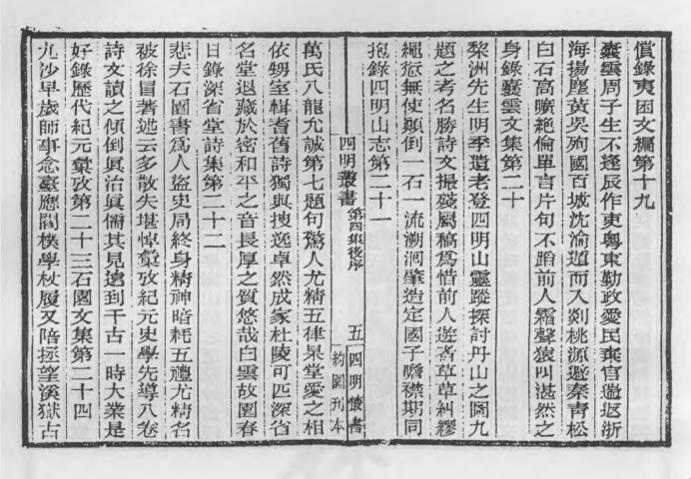 償錄夷困文編第十九
囊雲周子生不逢辰作吏粵東勤政愛民棄官遄返浙
海揚塵黃吳殉國百城沈淪遁而入剡桃源避秦青松
白石高曠絕倫單言片句不蹈前人霜聲猿叫湛然之
身錄囊雲文集第二十
棃洲先生明季遺老登四明山靈蹤探討丹山之圖九
題之考名勝詩文撮殘屬稿爲惜前人遊者草草糾繆
繩愆無使顛倒一石一流溯洄肇造定國子瞻襟期同
抱錄四明山志第二十一
四明叢書 第四集後序 五 四明叢書
約園刊本
萬氏八龍允誠第七題句驚人尤精五律杲堂愛之相
依甥室輯耆舊詩獨與搜逸卓然成家杜陵可匹深省
名堂退藏於密和平之音長厚之質悠哉白雲故園春
日錄深省堂詩集第二十二
悲夫石園書爲人盜史局終身精神暗耗五禮尤精名
被徐冒著述云多散失堪悼彙攷紀元史學先導八卷
詩文讀之傾倒眞治眞儒其見遠到千古一時大業是
好錄歷代紀元彙攷第二十三石園文集第二十四
九沙早歲師事念臺應閻樸學杖履又陪拯望溪獄古